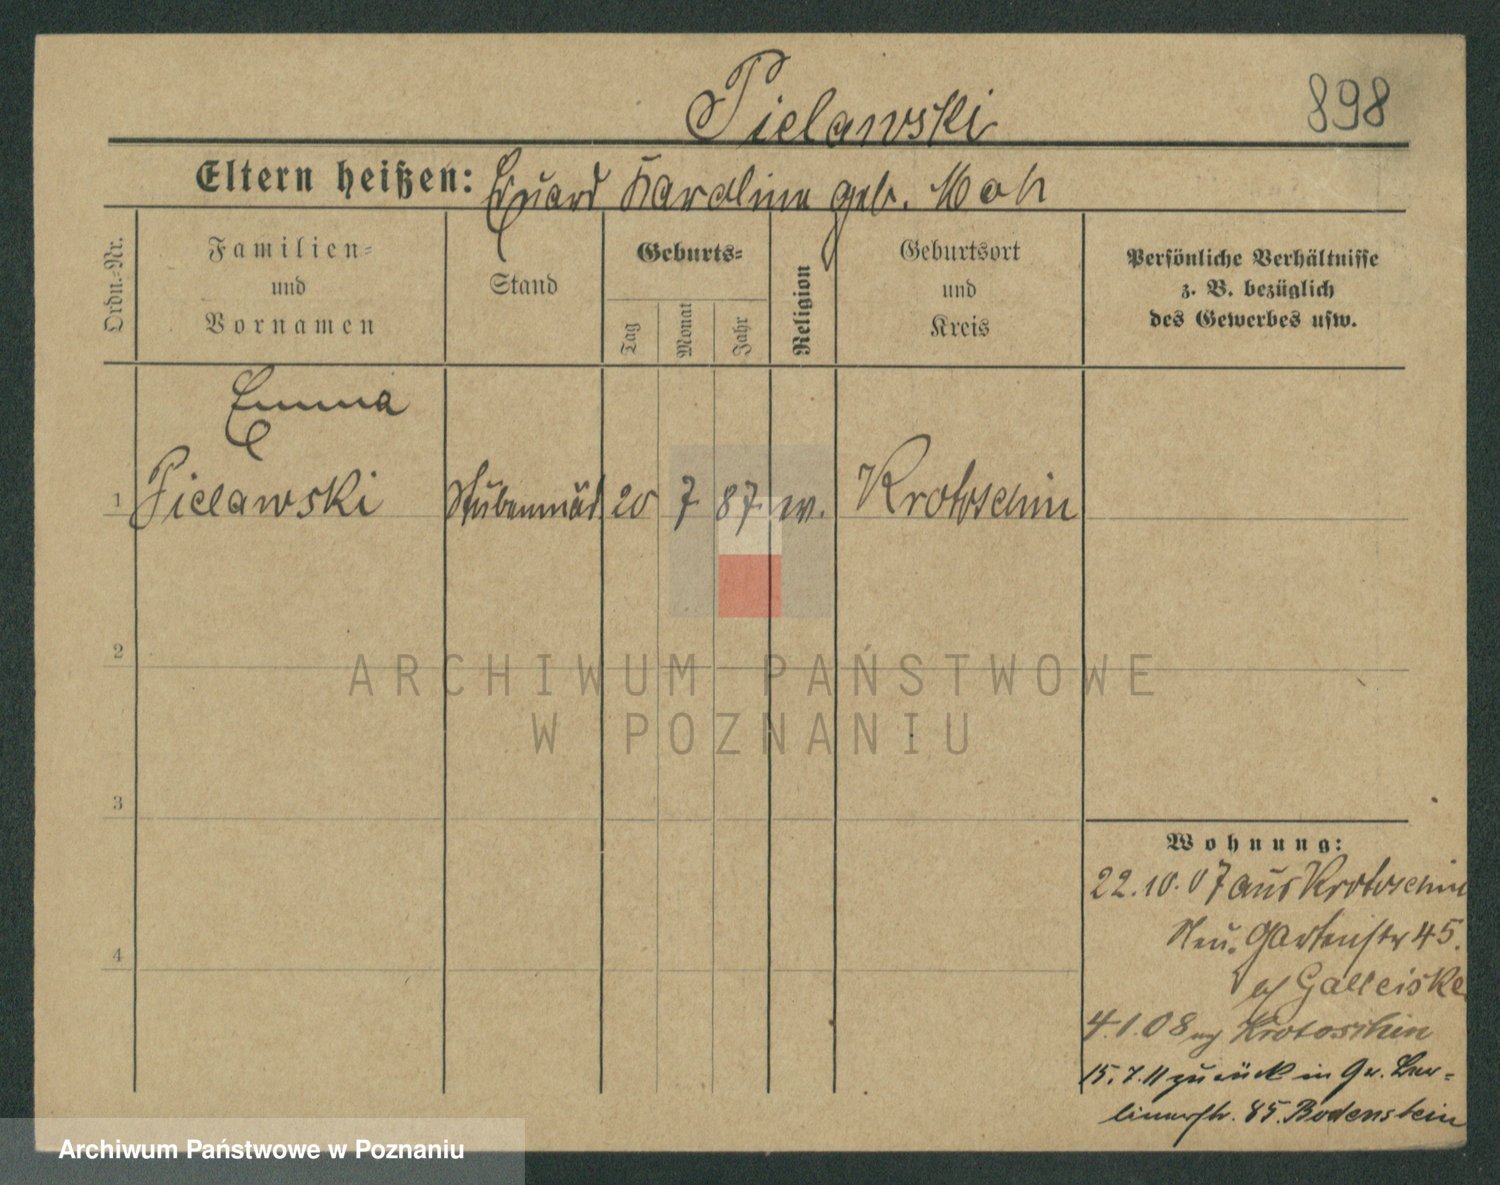 Pielawski
898
Eltern heißen: Eduard Karoline geb. Moh
Ordn.-Nr.
Familien-
und
Vornamen
Stand
Geburts-
Tag
Monat
Jahr
Religion
Geburtsort
und
Kreis
Persönliche Verhältnisse
z. B. bezüglich
des Gewerbes usw.
Emma
1 Pielawski Stubenmäd. 20 7 87 Krotoschin
2
3
4
Wohnung:
22.10.07 aus Krotoschin
Neu. Gartenstr 45.
Galleiske
4.1.08 Krotoschin
15.7.11 zurück in Gr. Ber-
linerstr. 85. Bodenstein
ARCHIWUM PAŃSTWOWE
W POZNANIU
Archiwum Państwowe w Poznaniu